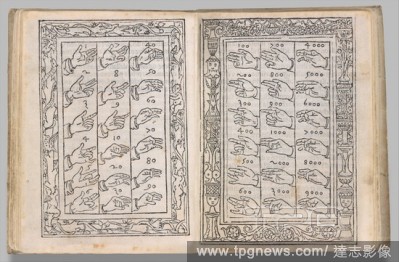 40
2 8 50
3 9 60
4 10 70
80
90
100 700 4000
200 800 5000
300 900 6000
400 1000 7000
500 2000 8000
600 3000 9000
www.tpgnews.com / 達志影像